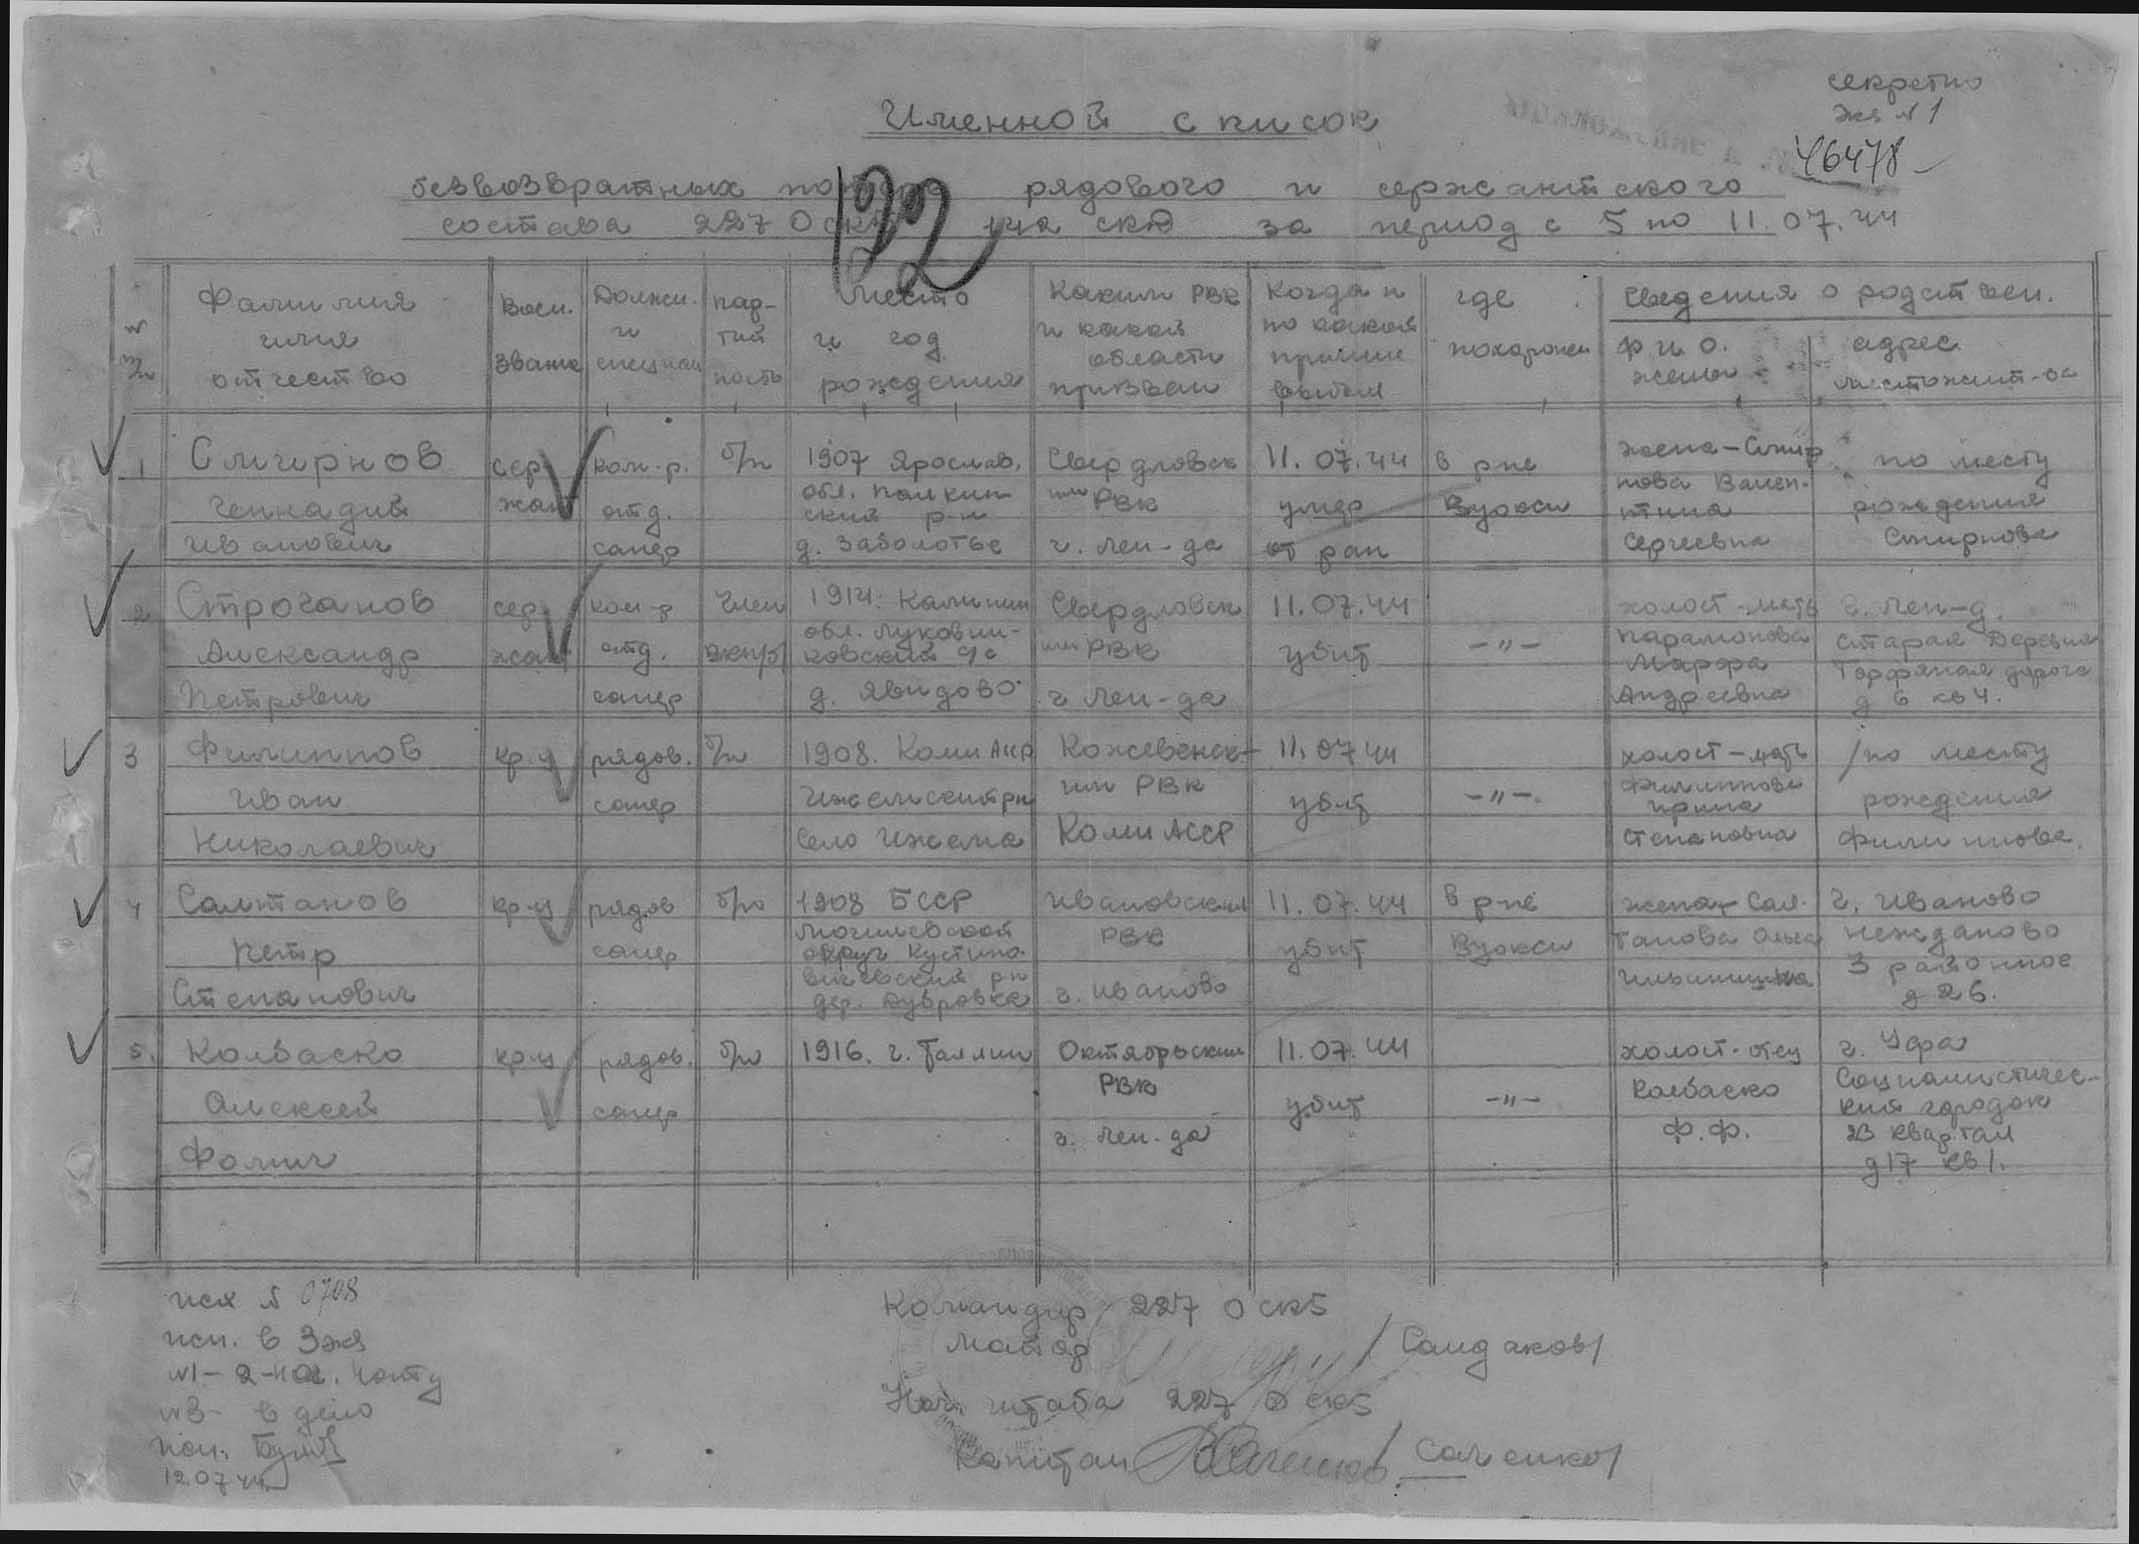 секретно
экз N 1
46478
Именной список
безвозвратных потерь рядового и сержантского
состава 227 ОСКБ 142 скд за период с 5 по 11.07.44
192
N п/п
Фамилия имя отчество
Воен. звание
Должн. и специал
пар-тий ность
Место и год рождения
Каким РВК и какой области призван
Когда и по какой причине выбыл
где похоронен
Сведения о родствен.
Ф И О. жены
адрес местожит-ва
1
Смирнов Геннадий Иванович
сер жан
ком-р. отд. сапер
б/п
1907 Ярослав. обл. ский р-н д. Заболотье
Свердловск им РВК г. Лен-да
11.07.44 умер от ран
в рне Вуокси
жена-Смир нова Вален-тина Сергеевна
по месту рождения Смирнова
2
Строганов Александр Петрович
сер жан
ком-р отд. сапер
Член ВКП/б/
1914. Калинин обл. Луковни-ковский с/с д. Явидово
Свердловск им РВК г Лен-да
11.07.44 убит
-"-
холост-мать Парамонова Марфа Андреевна
г. Лен-д. Старая Деревня Торфяная дорога д 6 кв 4.
3
Филиппов Иван Николаевич
кр-ц
рядов. сапер
б/п
1908. Коми АССР Ижемский рн Село Ижема
им РВК Коми АССР
11.07 44 убит
-"-.
холост-мать Филиппова Ирина Степановна
/по месту рождения Филиппова.
4
Салтанов Петр Степанович
кр-ц
рядов сапер
б/п
1908 БССР Могилевской округ рн дер. Дубровка
Ивановским РВК г. Иваново
11.07.44 убит
в рне Вуокси
жена-Сал-танова Ольга Ильинична
г. Иваново Нежданово 3 районное д 26.
5.
Колбаско Алексей Фомич
кр-ц
рядов. сапер
б/п
1916. г. Таллин
Октябрьским РВК г. Лен-да
11.07.44 убит
-"-
холост-отец Колбаско Ф.Ф.
г. Уфа Социалистичес-кий городок 23 квартал д 17 кв 1.
исх N 0708
исп. в 3 экз
N 3- в дело
12.07 44
Командир 227 ОСКБ
Майор /Сандаков/
Нач. штаба 227 ОСКБ
Капитан /Саченко/